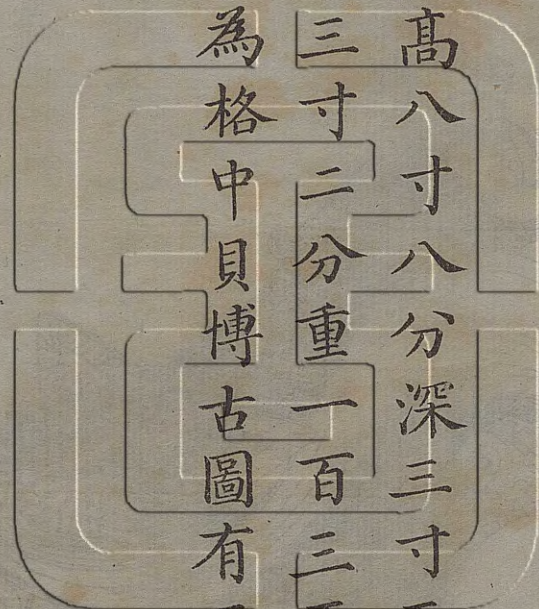 高八寸八分深三寸
三寸二分重一百三
為格中貝博古圖有